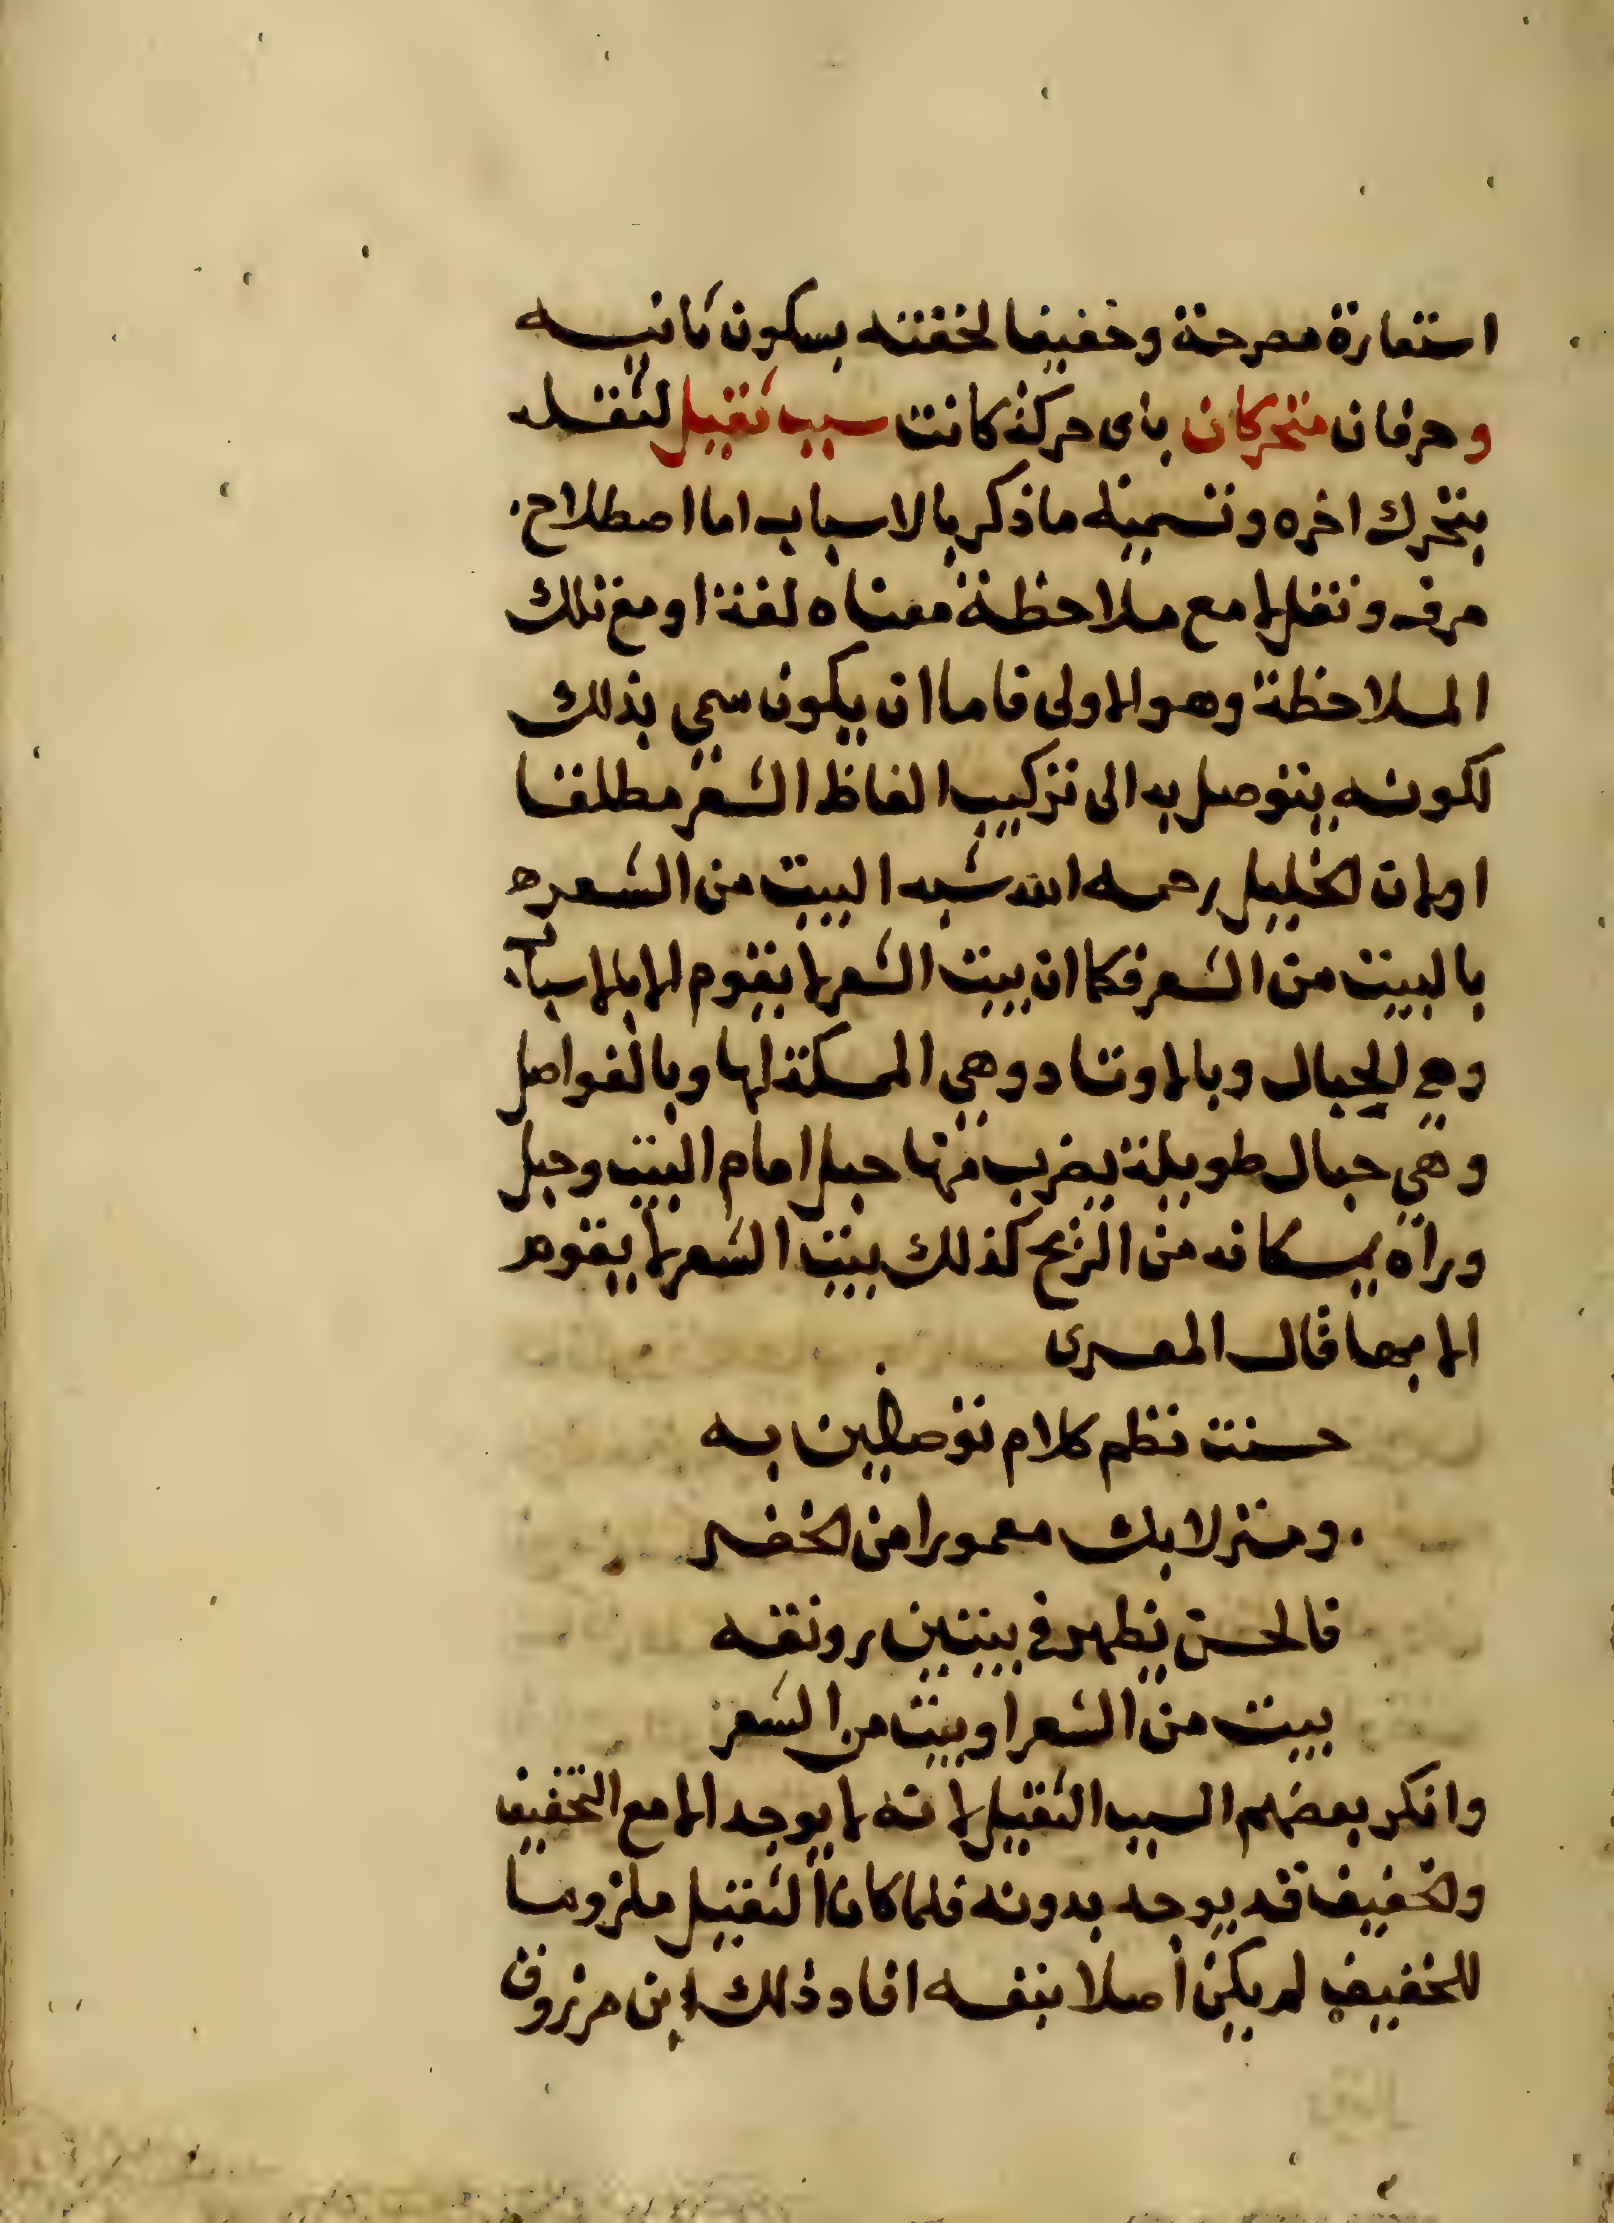 استعارة مصرحة وخفيفا لخفته بسكون ثانيه
وحرفان متحركان باى حركة كانت سبب ثقيل لثقله
بتحرك اخره وتسمية ماذكر بالاسباب اما اصطلاح
صرف ونقل لا مع ملاحظة معناه لغة او مع تلك
الملاحظة وهو الاولى فاما ان يكون سمي بذلك
لكونه يتوصل به الى تركيب الفاظ الشعر مطلقا
اولان الخليل رحمه الله شبه البيت من الشعر
بالبيت من الشعر فكما ان بيت الشعر لا يقوم الا بالاسباب
وهي الحبال وبالاوتاد وهي الممسكة لها وبالفواصل
وهي حبال طويلة يضرب منها حبل امام البيت وحبل
وراه يمسكانه من الريح كذلك بيت الشعر لا يقوم
الا بها قال المعرى
حسنت نظم كلام توصفين به
ومنزلا بك معمورا من الخفر
فالحسن يظهر في بيتين رونقه
بيت من الشعر او بيت من الشعر
وانكر بعضهم السبب الثقيل لانه لا يوجد الا مع الخفيف
والخفيف قد يوجد بدونه فلما كان الثقيل ملزوما
للخفيف لم يكن اصلا بنفسه افاد ذلك ابن مرزوق